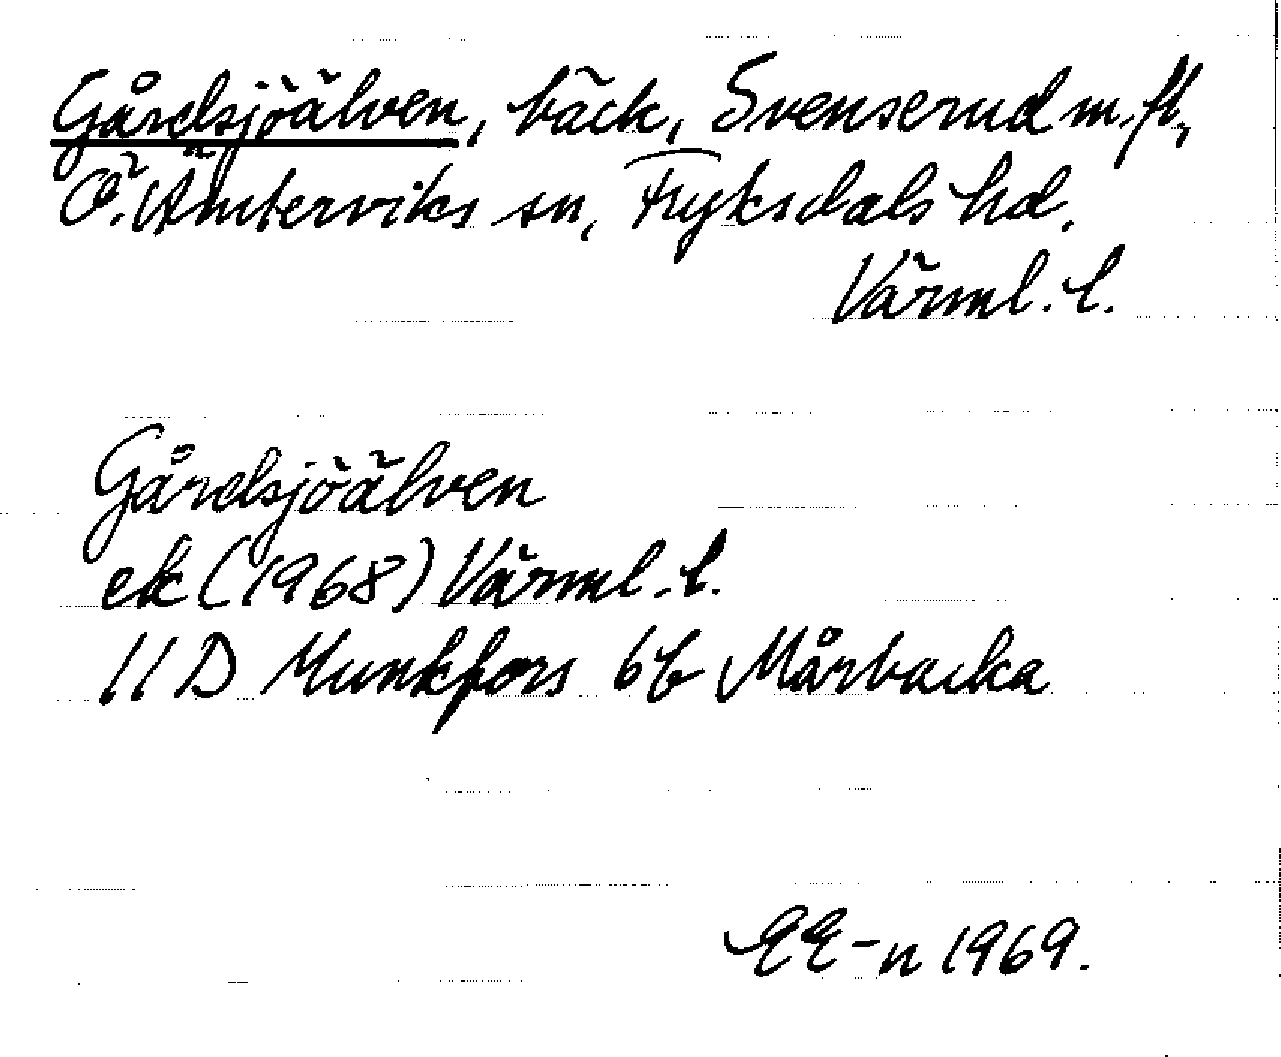 Gårdsjöälven, bäck, Svenserud m.fl,
Ö. Ämterviks sn, Fryksdals hd.
Värml. l.
Gårdsjöälven
ek (1968) Värml. l.
11 D Munkfors 6b Mårbacka
EE-n 1969.